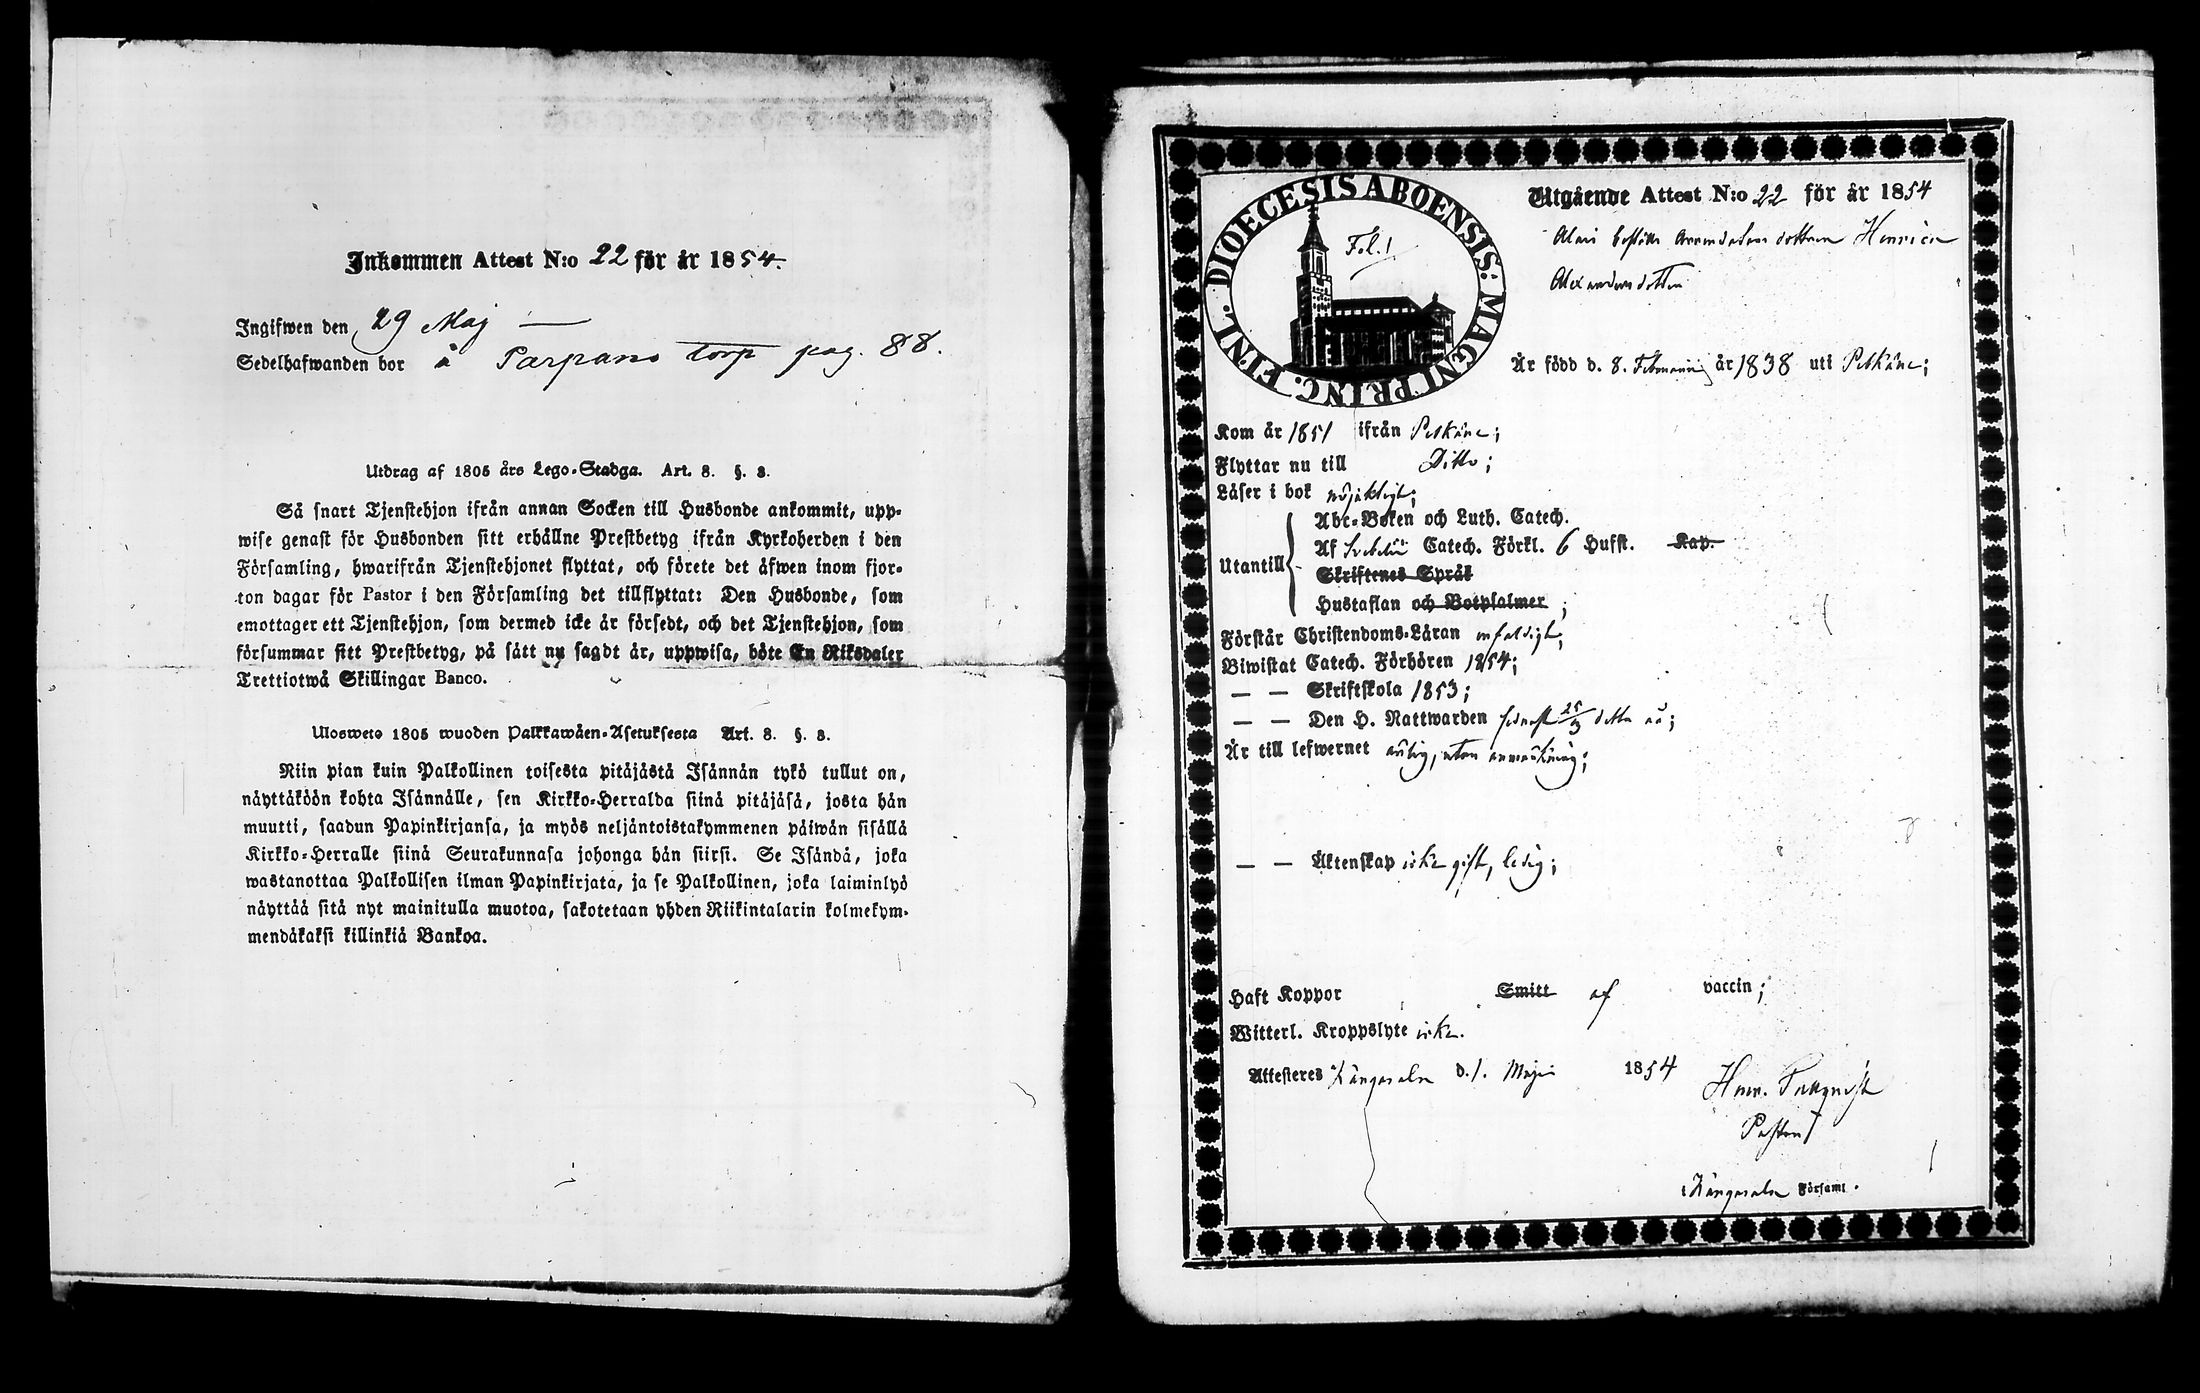 Inkommen Attest N:o 22 för år 1854.
Ingifwen den 29 Maj —
Sedelhafwanden bor å Parpans torp pag. 88.
Utdrag af 1805 års Lego-Stadga. Art. 8. §. 8.
Så snart Tjenstehjon ifrån annan Socken till Husbonde ankommit, upp-
wise genast för Husbonden sitt erhållne Prestbetyg ifrån Kyrkoherden i den
Församling, hwarifrån Tjenstehjonet flyttat, och förete det äfwen inom fjor-
ton dagar för Pastor i den Församling det tillflyttat: Den Husbonde, som
emottager ett Tjenstehjon, som dermed icke är försedt, och det Tjenstehjon, som
försummar sitt Prestbetyg, på sätt nu sagdt är, uppwisa, böte En Riksdaler
Trettiotwå Skillingar Banco.
Ulosweto 1805 wuoden Palkkawäen-Asetuksesta Art. 8. §. 8.
Niin pian kuin Palkollinen toisesta pitäjästä Isännän tykö tullut on,
näyttäköön kohta Isännälle, sen Kirkko-Herralda siinä pitäjäsä, josta hän
muutti, saadun Papinkirjansa, ja myös neljäntoistakymmenen päiwän sisällä
Kirkko-Herralle siinä Seurakunnasa johonga hän siirsi. Se Isändä, joka
wastanottaa Palkollisen ilman Papinkirjata, ja se Palkollinen, joka laiminlyö
näyttää sitä nyt mainitulla muotoa, sakotetaan yhden Riikintalarin kolmekym-
mendäkaksi killinkiä Bankoa.
DIOECESIS ABOENSIS: MAGNI PRINC. FINL.
Fol. 1
Utgående Attest N:o 22 för år 1854
Henrica
Alexandersdotter
Är född d. 8. Februarii år 1838 uti Pelkäne;
Kom år 1851 ifrån Pelkäne;
Flyttar nu till Ditto;
Läser i bok nöjaktigt;
Utantill
Abc-Boken och Luth. Catech.
Af Svebelii Catech. Förkl. 6 Hufst. Kap.
Skriftenes Språk
Hustaflan och Botpsalmer;
Förstår Christendoms-Läran enfaldigt;
Biwistat Catech. Förhören 1854;
— — Skriftskola 1853;
— — Den H. Nattwarden sednast 25/3 detta år;
Är till lefwernet ärlig, utan anmärkning;
— — Äktenskap icke gift, ledig;
Haft Koppor Smitt af vaccin;
Witterl. Kroppslyte icke.
Attesteres Kångasala d. 1. Maji 1854
Henr.
Pastor
i Kångasala Församl.